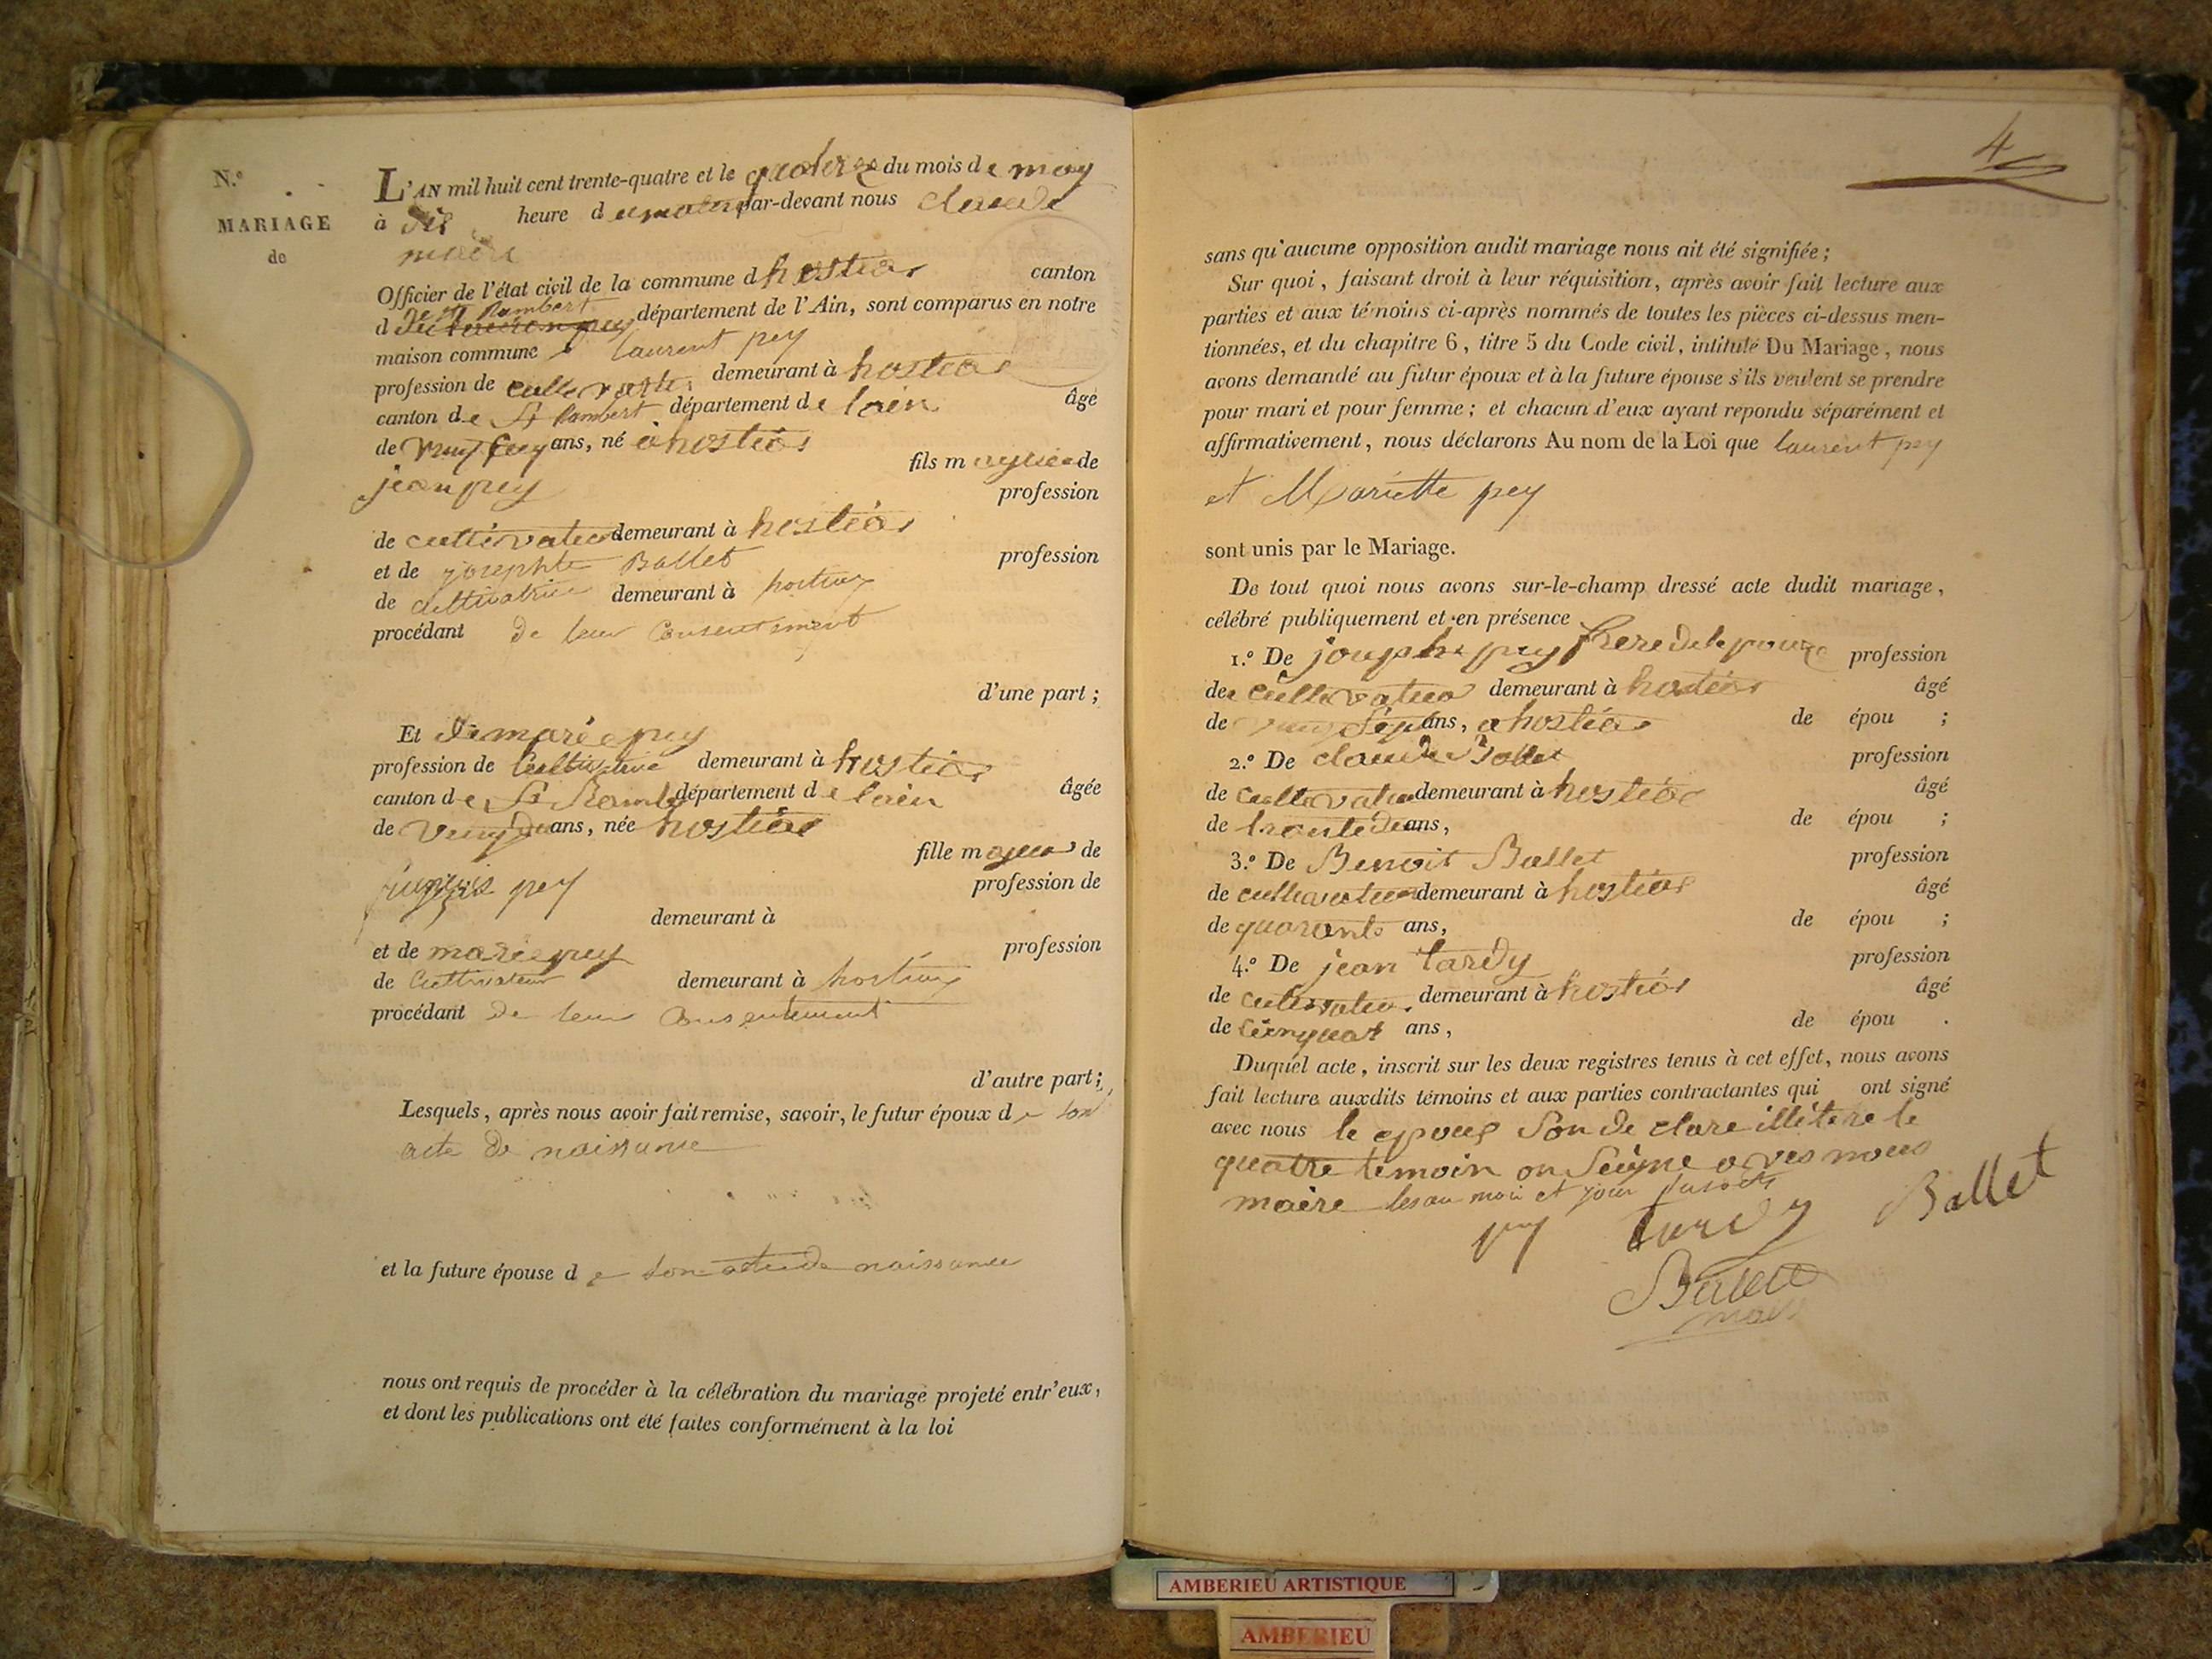 N.º
MARIAGE
de
L'AN mil huit cent trente-quatre et le quaterze du mois de may
à dis heure du matin par-devant nous claude
maire
Officier de l'état civil de la commune d hostias canton
de St Rambert
d département de l'Ain, sont comparus en notre
maison commune laurent pey
profession de demeurant à hostias
canton de St Rambert département de lain âgé
de ans, né a hostias
fils de
jean pey profession
de cultivateur demeurant à hostias
et de josephte Ballet profession
de cultivatrice demeurant à hostiaz
procédant de leur Consentement
d'une part ;
Et marie pey
profession de demeurant à hostias
canton de St département de lain âgée
de ans, née hostias
fille de
françois pey profession de
demeurant à
et de marie pey profession
de Cultivateur demeurant à hostiaz
procédant de leur Consentement
d'autre part ;
Lesquels, après nous avoir fait remise, savoir, le futur époux de son
acte de naissance
et la future épouse de son acte de naissance
nous ont requis de procéder à la célébration du mariage projeté entr'eux,
et dont les publications ont été faites conformément à la loi
4
sans qu'aucune opposition audit mariage nous ait été signifiée ;
Sur quoi, faisant droit à leur réquisition, après avoir fait lecture aux
parties et aux témoins ci-après nommés de toutes les pièces ci-dessus men-
tionnées, et du chapitre 6, titre 5 du Code civil, intitulé Du Mariage, nous
avons demandé au futur époux et à la future épouse s'ils veulent se prendre
pour mari et pour femme ; et chacun d'eux ayant repondu séparément et
affirmativement, nous déclarons Au nom de la Loi que laurent pey
et Mariette pey
sont unis par le Mariage.
De tout quoi nous avons sur-le-champ dressé acte dudit mariage,
célébré publiquement et en présence
1.º De pey frere de profession
de demeurant à hostias âgé
de ans, a hostias de épou ;
2.º De claude Ballet profession
de demeurant à hostias âgé
de ans, de épou ;
3.º De Benoit Ballet profession
de demeurant à hostias âgé
de quarante ans, de épou ;
4.º De jean tardy profession
de demeurant à hostias âgé
de ans, de épou .
Duquel acte, inscrit sur les deux registres tenus à cet effet, nous avons
fait lecture auxdits témoins et aux parties contractantes qui ont signé
avec nous le epous son de clare illétere le
quatre temoin on Seigne aves nous
maire les an moi et jour susdits
pey tardy Ballet
Ballet
maire
AMBERIEU ARTISTIQUE
AMBERIEU